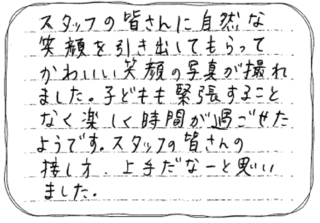 スタッフの皆さんに自然な
笑顔を引き出してもらって
かわいい笑顔の写真が撮れ
ました。子どもも緊張すること
なく楽しく時間が過ごせた
ようです。スタッフの皆さんの
接し方、上手だなーと思い
ました。